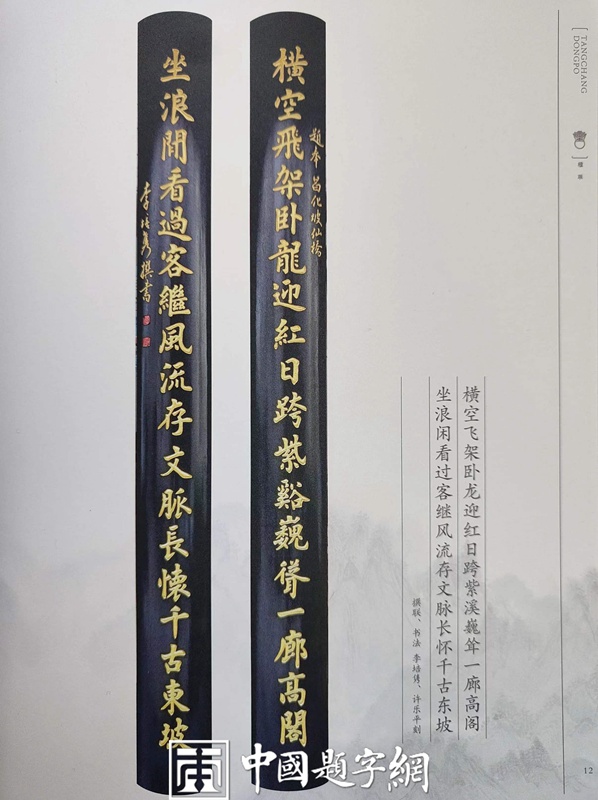 TANGCHANG
DONGPO
楹联
橫空飛架卧龍迎紅日跨紫谿巍聳一廊高閣
昌化坡仙橋
坐浪閒看過客繼風流存文脈長懷千古東坡
李培隽撰書
横空飞架卧龙迎红日跨紫溪巍耸一廊高阁
坐浪闲看过客继风流存文脉长怀千古东坡
撰联、书法 李培隽、许乐平刻
12
中國題字網